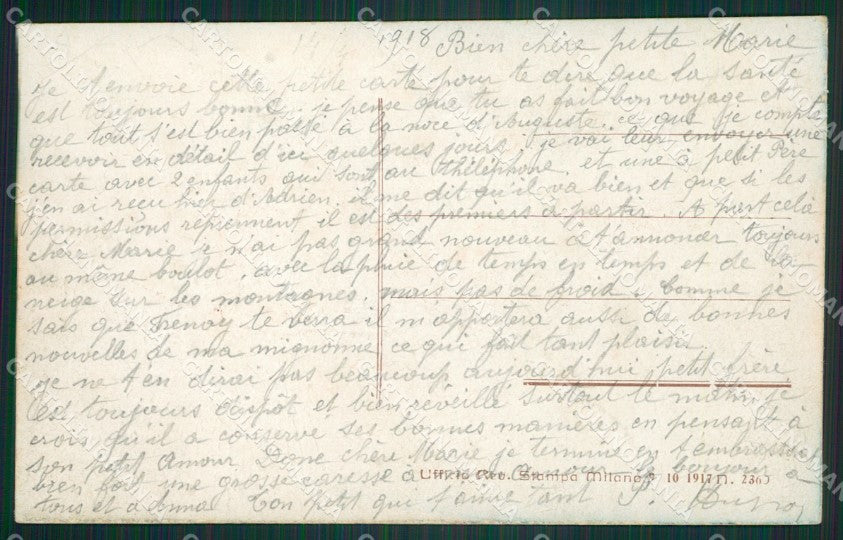 1918 Bien chère petite Marie
Je t'envoie cette petite carte pour te dire que la santé
est toujours bonne. je pense que tu as fait bon voyage et
que tout s'est bien passé à la noce d'Auguste. ce que je compte
recevoir en détail d'ici quelques jours. je vai leur envoyer une
carte avec 2 enfants qui sont au théléphone. et une à petit Père
j'en ai reçu hier d'Adrien. il me dit qu'il va bien et que si les
permissions reprennent il est des premiers à partir. A part celà
chère Marie je n'ai pas grand nouveau à t'annoncer toujours
au même boulot. avec la pluie de temps en temps et de la
neige sur les montagnes. mais pas de froid. Comme je
sais que te verra il m'apportera aussi de bonnes
nouvelles de ma mignonne ce qui fait tant plaisir.
je ne t'en dirai pas beaucoup aujourd'hui petit frère
est toujours et bien réveillé surtout le matin. je
crois qu'il a conservé ses bonnes manières en pensant à
son petit Amour. Donc chère Marie je termine en t'embrassant
bien fort une grosse caresse à le bonjour à
tous et à Ton petit qui t'aime tant
Ufficio Rev. Stampa Milano 10 1917 N. 236
CARTOLINOMANIA